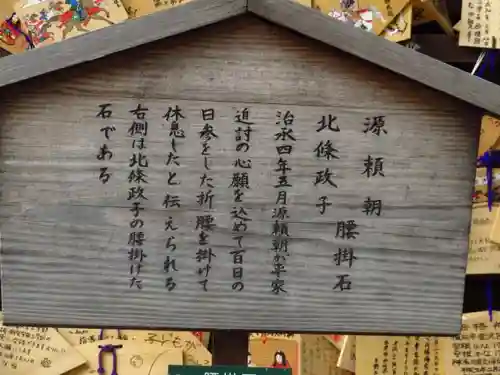 源頼朝
北條政子 腰掛石
治永四年五月源頼朝が平家
追討の心願を込めて百日の
日参をした折、腰を掛けて
休息したと伝えられる
右側は北條政子の腰掛けた
石である